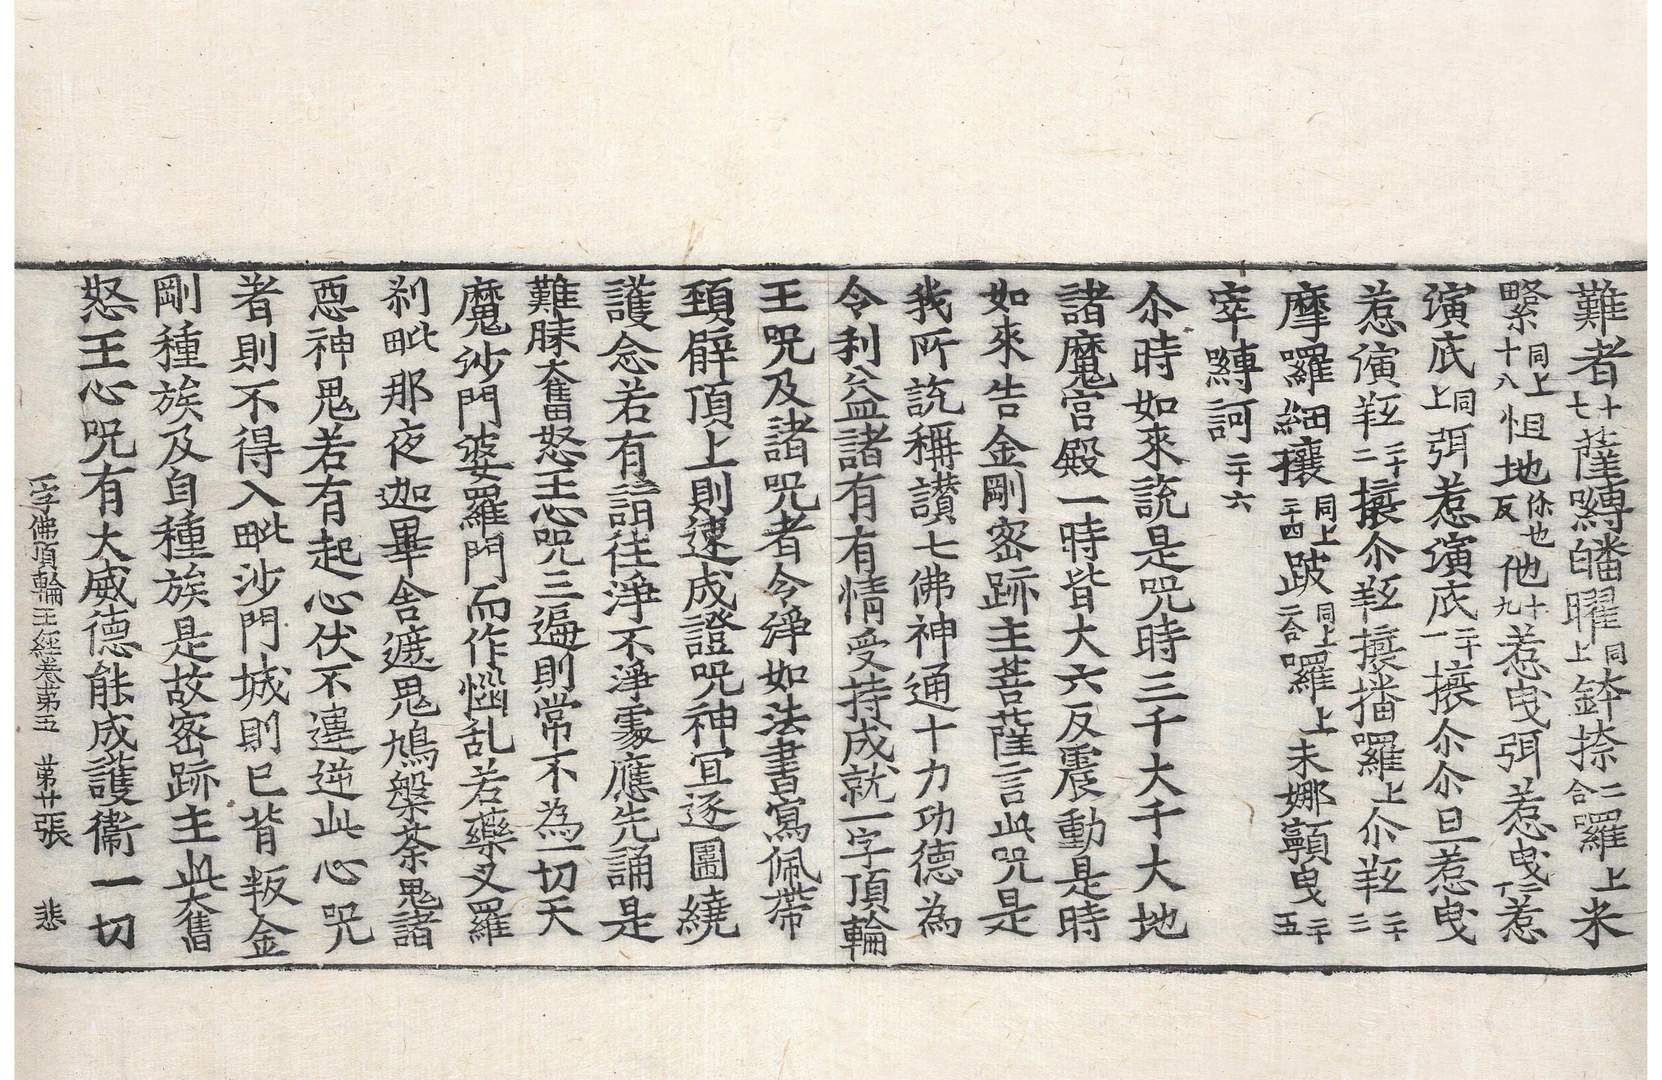 難者十七薩嚩皤曜同上鉢捺二合囉上米
綮同上十八怛地你也反他十九惹曳弭惹曳二十惹
演底同上弭惹演底二十一攘尒尒旦惹曳
惹演羝二十二攘尒羝攘播囉上尒羝二十三
摩囉細攘同上二十四跛同上二合囉上未娜顫曳二十五
窣嚩訶二十六
尒時如來說是咒時三千大千大地
諸魔宮殿一時皆大六反震動是時
如來告金剛密跡主菩薩言此咒是
我所說稱讚七佛神通十力功德為
令利益諸有有情受持成就一字頂輪
王咒及諸咒者令淨如法書寫佩帶
頸臂頂上則速成證咒神冝逐圍繞
護念若有詣往淨不淨處應先誦是
難勝大奮怒王心咒三遍則常不為一切天
魔沙門婆羅門而作惱乱若藥叉羅
刹毗那夜迦畢舍遮鬼鳩槃荼鬼諸
惡神鬼若有起心伏不違逆此心咒
者則不得入毗沙門城則已背叛金
剛種族及自種族是故密跡主此大奮
怒王心咒有大威德能成護衞一切
一字佛頂輪王經卷第五 第廿張 悲